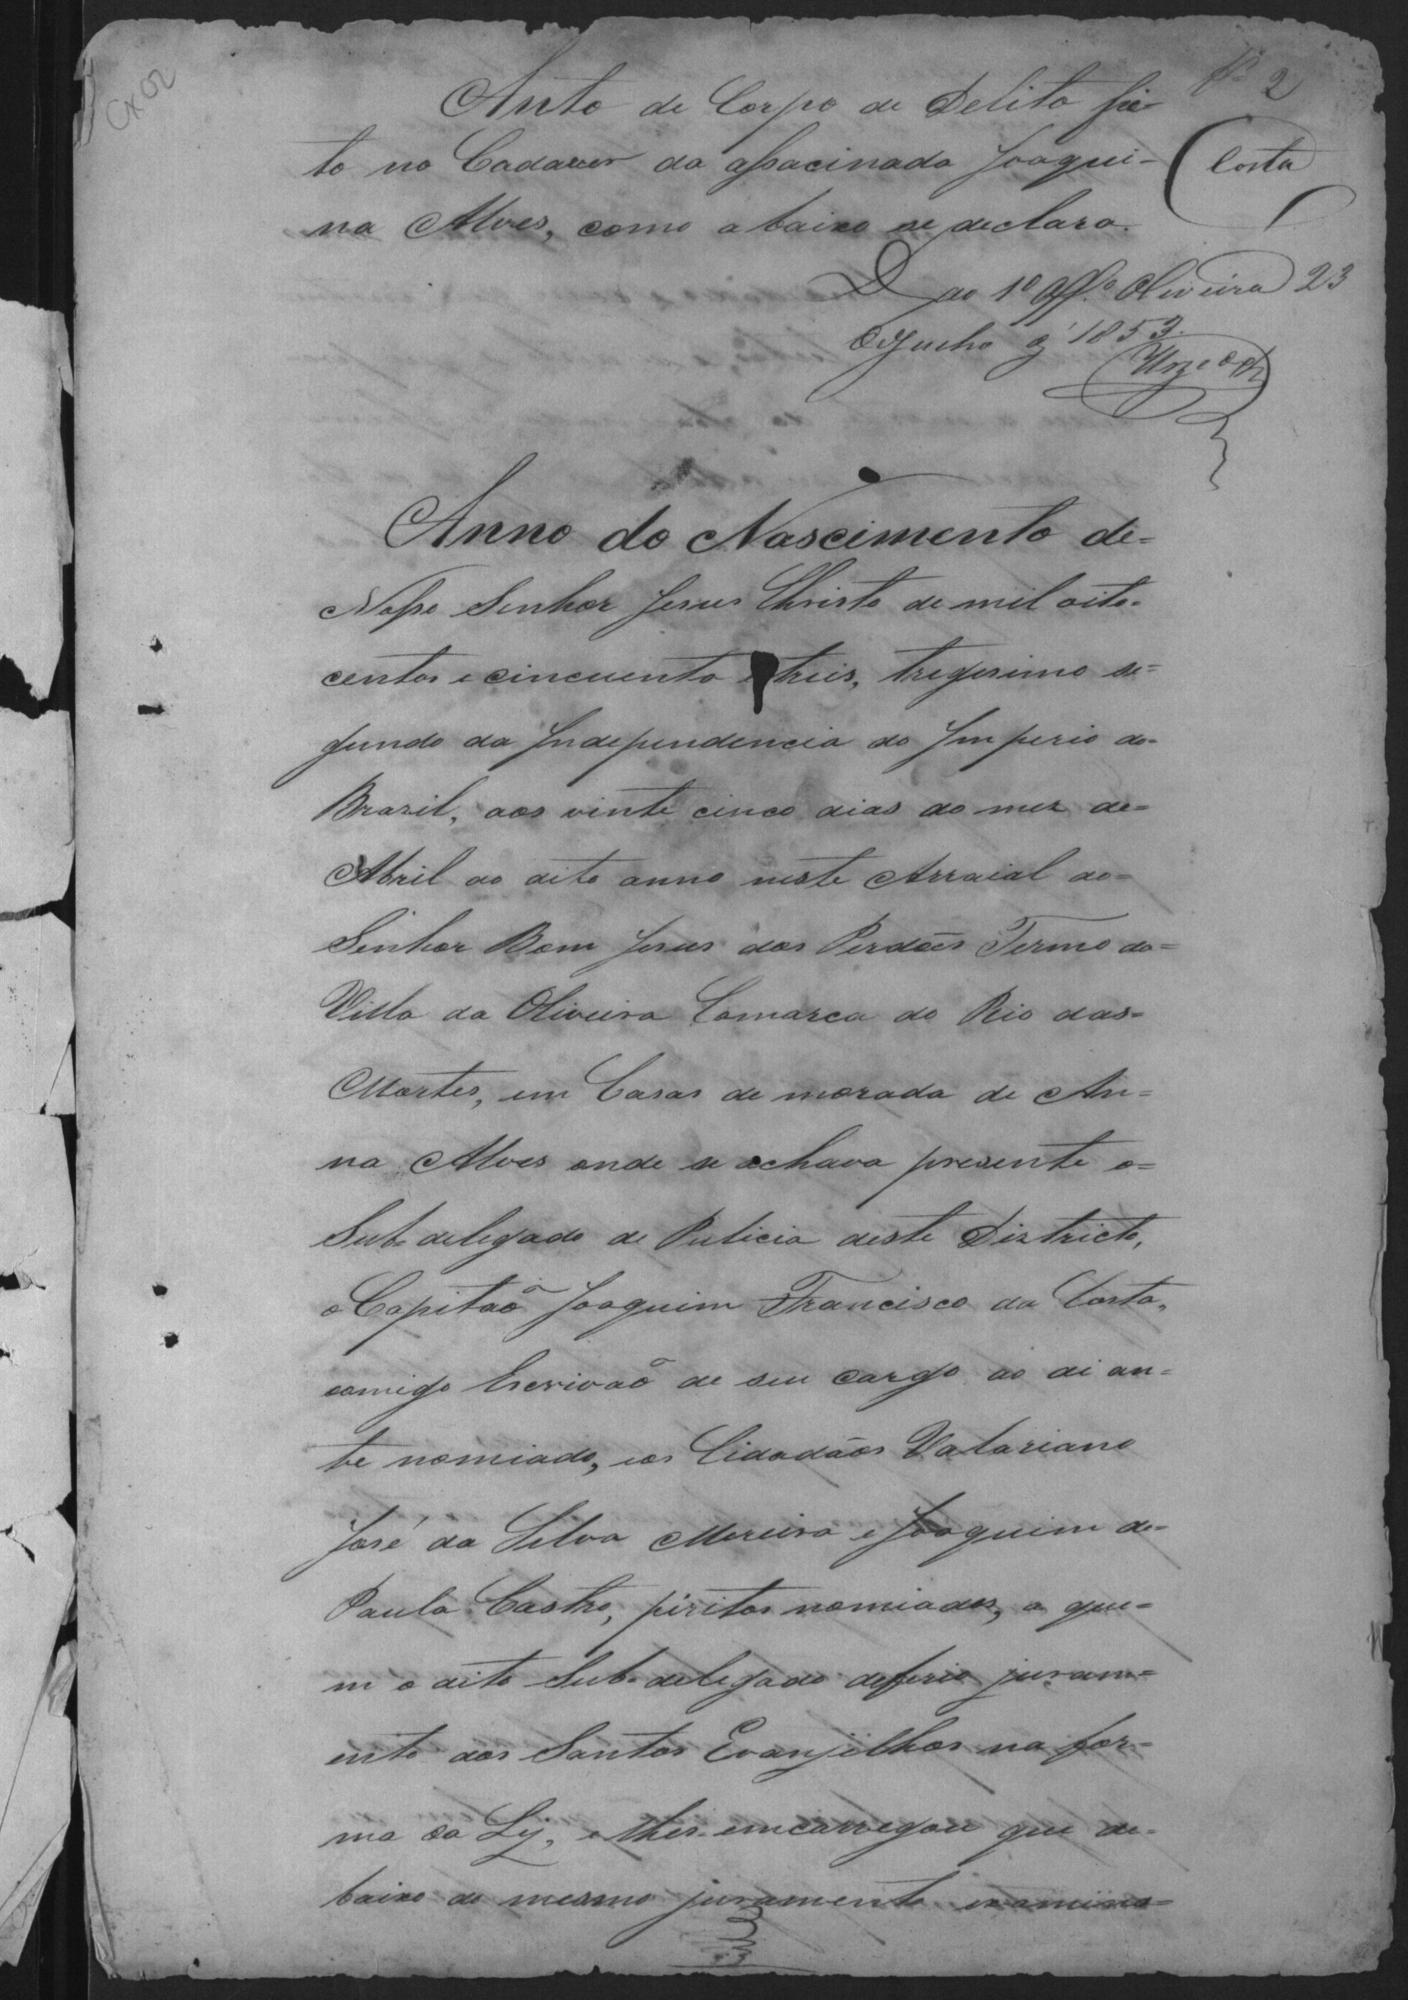 CX 02
2
Auto de Corpo de Delito fei-
to no Cadaver da assacinada Joaqui-
na Alves, como abaixo se declara.
Costa
D. ao 1º Off.º Oliveira 23
de Junho de 1853.
Anno do Nascimento de=
Nosso Senhor Jesus Christo de mil oito-
centos e cincuenta e treis, tregesimo se=
gundo da Independencia do Imperio do-
Brazil, aos vinte cinco dias do mez de=
Abril do dito anno neste Arraial do=
Senhor Bom Jesus dos Perdões Termo da=
Villa da Oliveira Comarca do Rio das=
Mortes, em Casas de morada de An=
na Alves onde se achava presente o=
Sub-delegado de Pulicia deste Districto,
o Capitaõ Joaquim Francisco da Costa,
comigo Escrivaõ de seu cargo ao dian=
te nomiado, e os Cidadãos Valariano
José da Silva Moreira e Joaquim de=
Paula Castro, piritos nomiados, a que=
m o dito Sub-delegado deferio juram=
ento dos Santos Evanjilhos na for=
ma da Ley, e lhes emcarregou que de=
baixo do mesmo juramento examina=